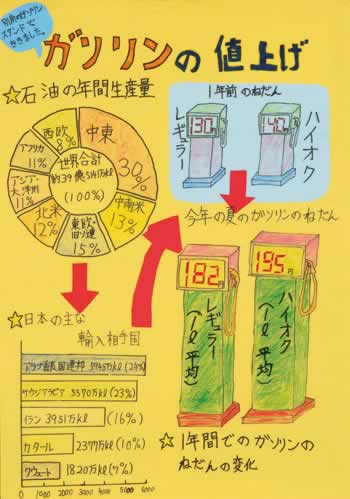 別府のガソリン
スタンドで
ききました。
ガソリンの値上げ
☆石油の年間生産量
世界合計
(100%)
中東
30%
中南米
13%
東欧・
旧ソ連
15%
北米
12%
アジア・
大洋州
11%
アフリカ
11%
西欧
8%
1年前のねだん
130
レギュラー
140
ハイオク
今年の夏のガソリンのねだん
182
レギュラー
(1ℓ平均)
195
ハイオク
(1ℓ平均)
☆日本の主な
輸入相手国
アラブ首長国連邦
(24%)
サウジアラビア 5570万kℓ (23%)
イラン 3951万kℓ (16%)
カタール 2377万kℓ (10%)
クウェート 1820万kℓ (7%)
0 1000 2000 3000 4000 5000 6000
☆1年間でのガソリンの
ねだんの変化